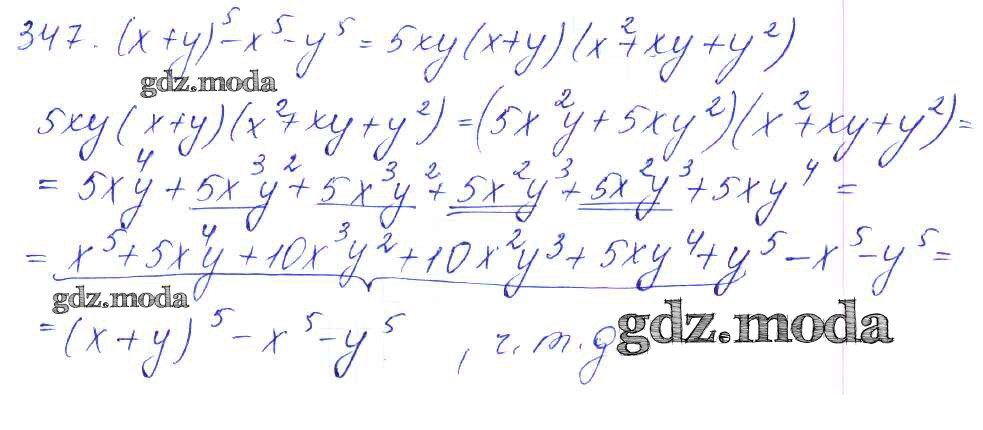 347. (x+y)⁵-x⁵-y⁵ = 5xy(x+y)(x²+xy+y²)
gdz.moda
5xy(x+y)(x²+xy+y²) = (5x²y+5xy²)(x²+xy+y²) =
= 5x⁴y + 5x³y² + 5x³y² + 5x²y³ + 5x²y³ + 5xy⁴ =
= x⁵+5x⁴y+10x³y²+10x²y³+5xy⁴+y⁵-x⁵-y⁵ =
gdz.moda
= (x+y)⁵-x⁵-y⁵, ч.т.д
gdz.moda